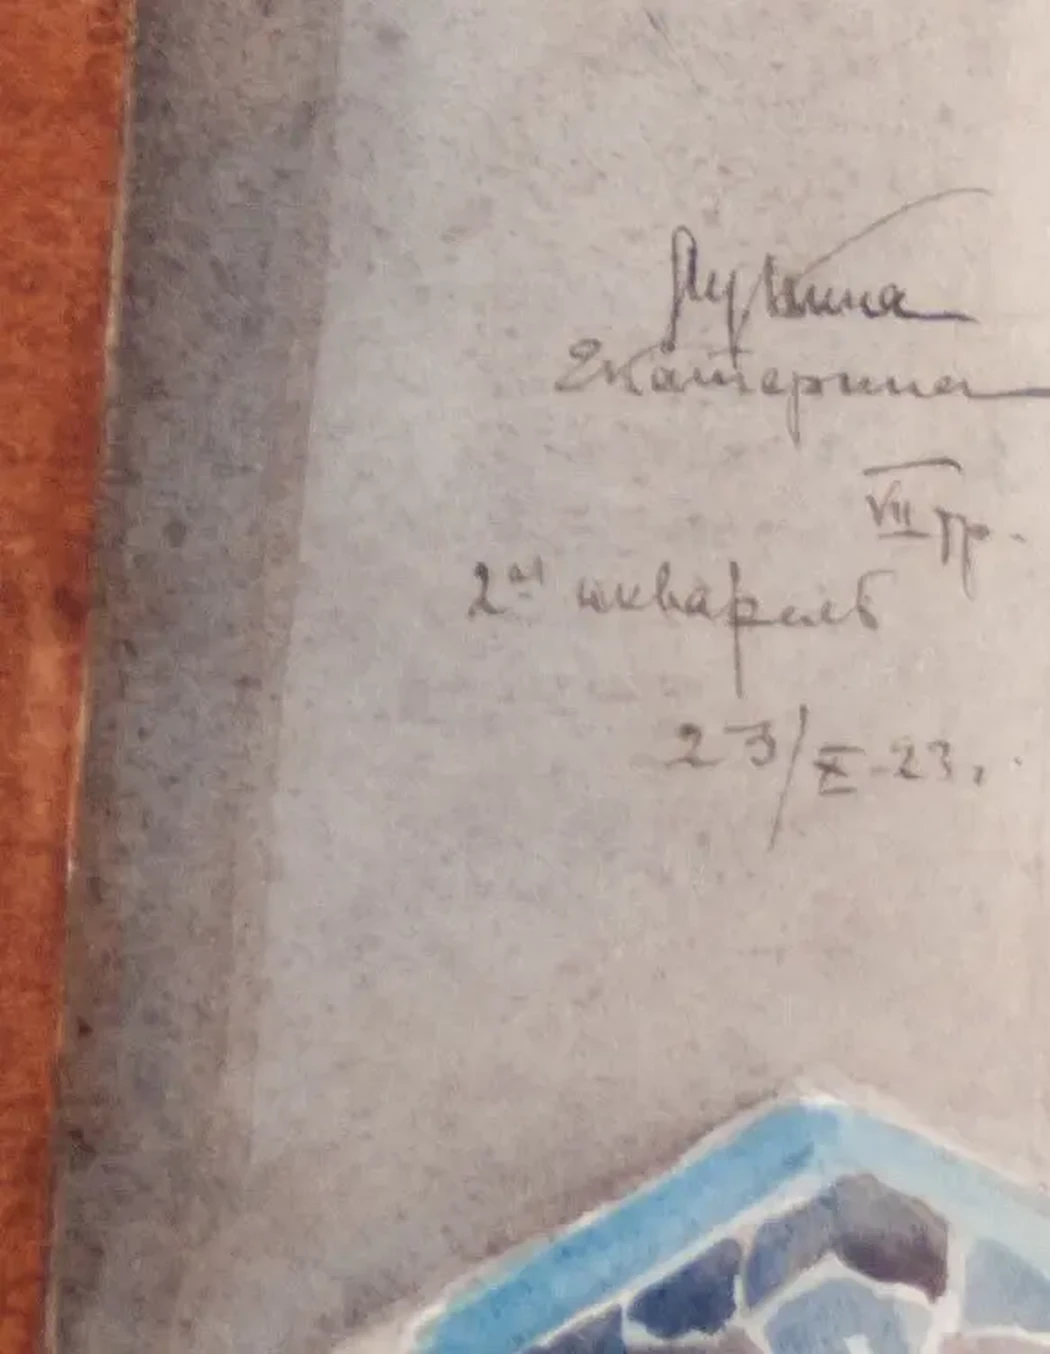 Екатерина
VII гр.
2ая акварель
23/X-23.